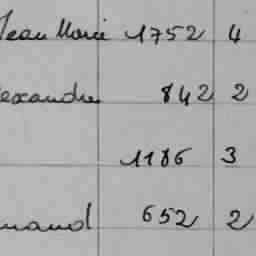 Jean Marie 1752 4
exandre 842 2
1186 3
nand 652 2